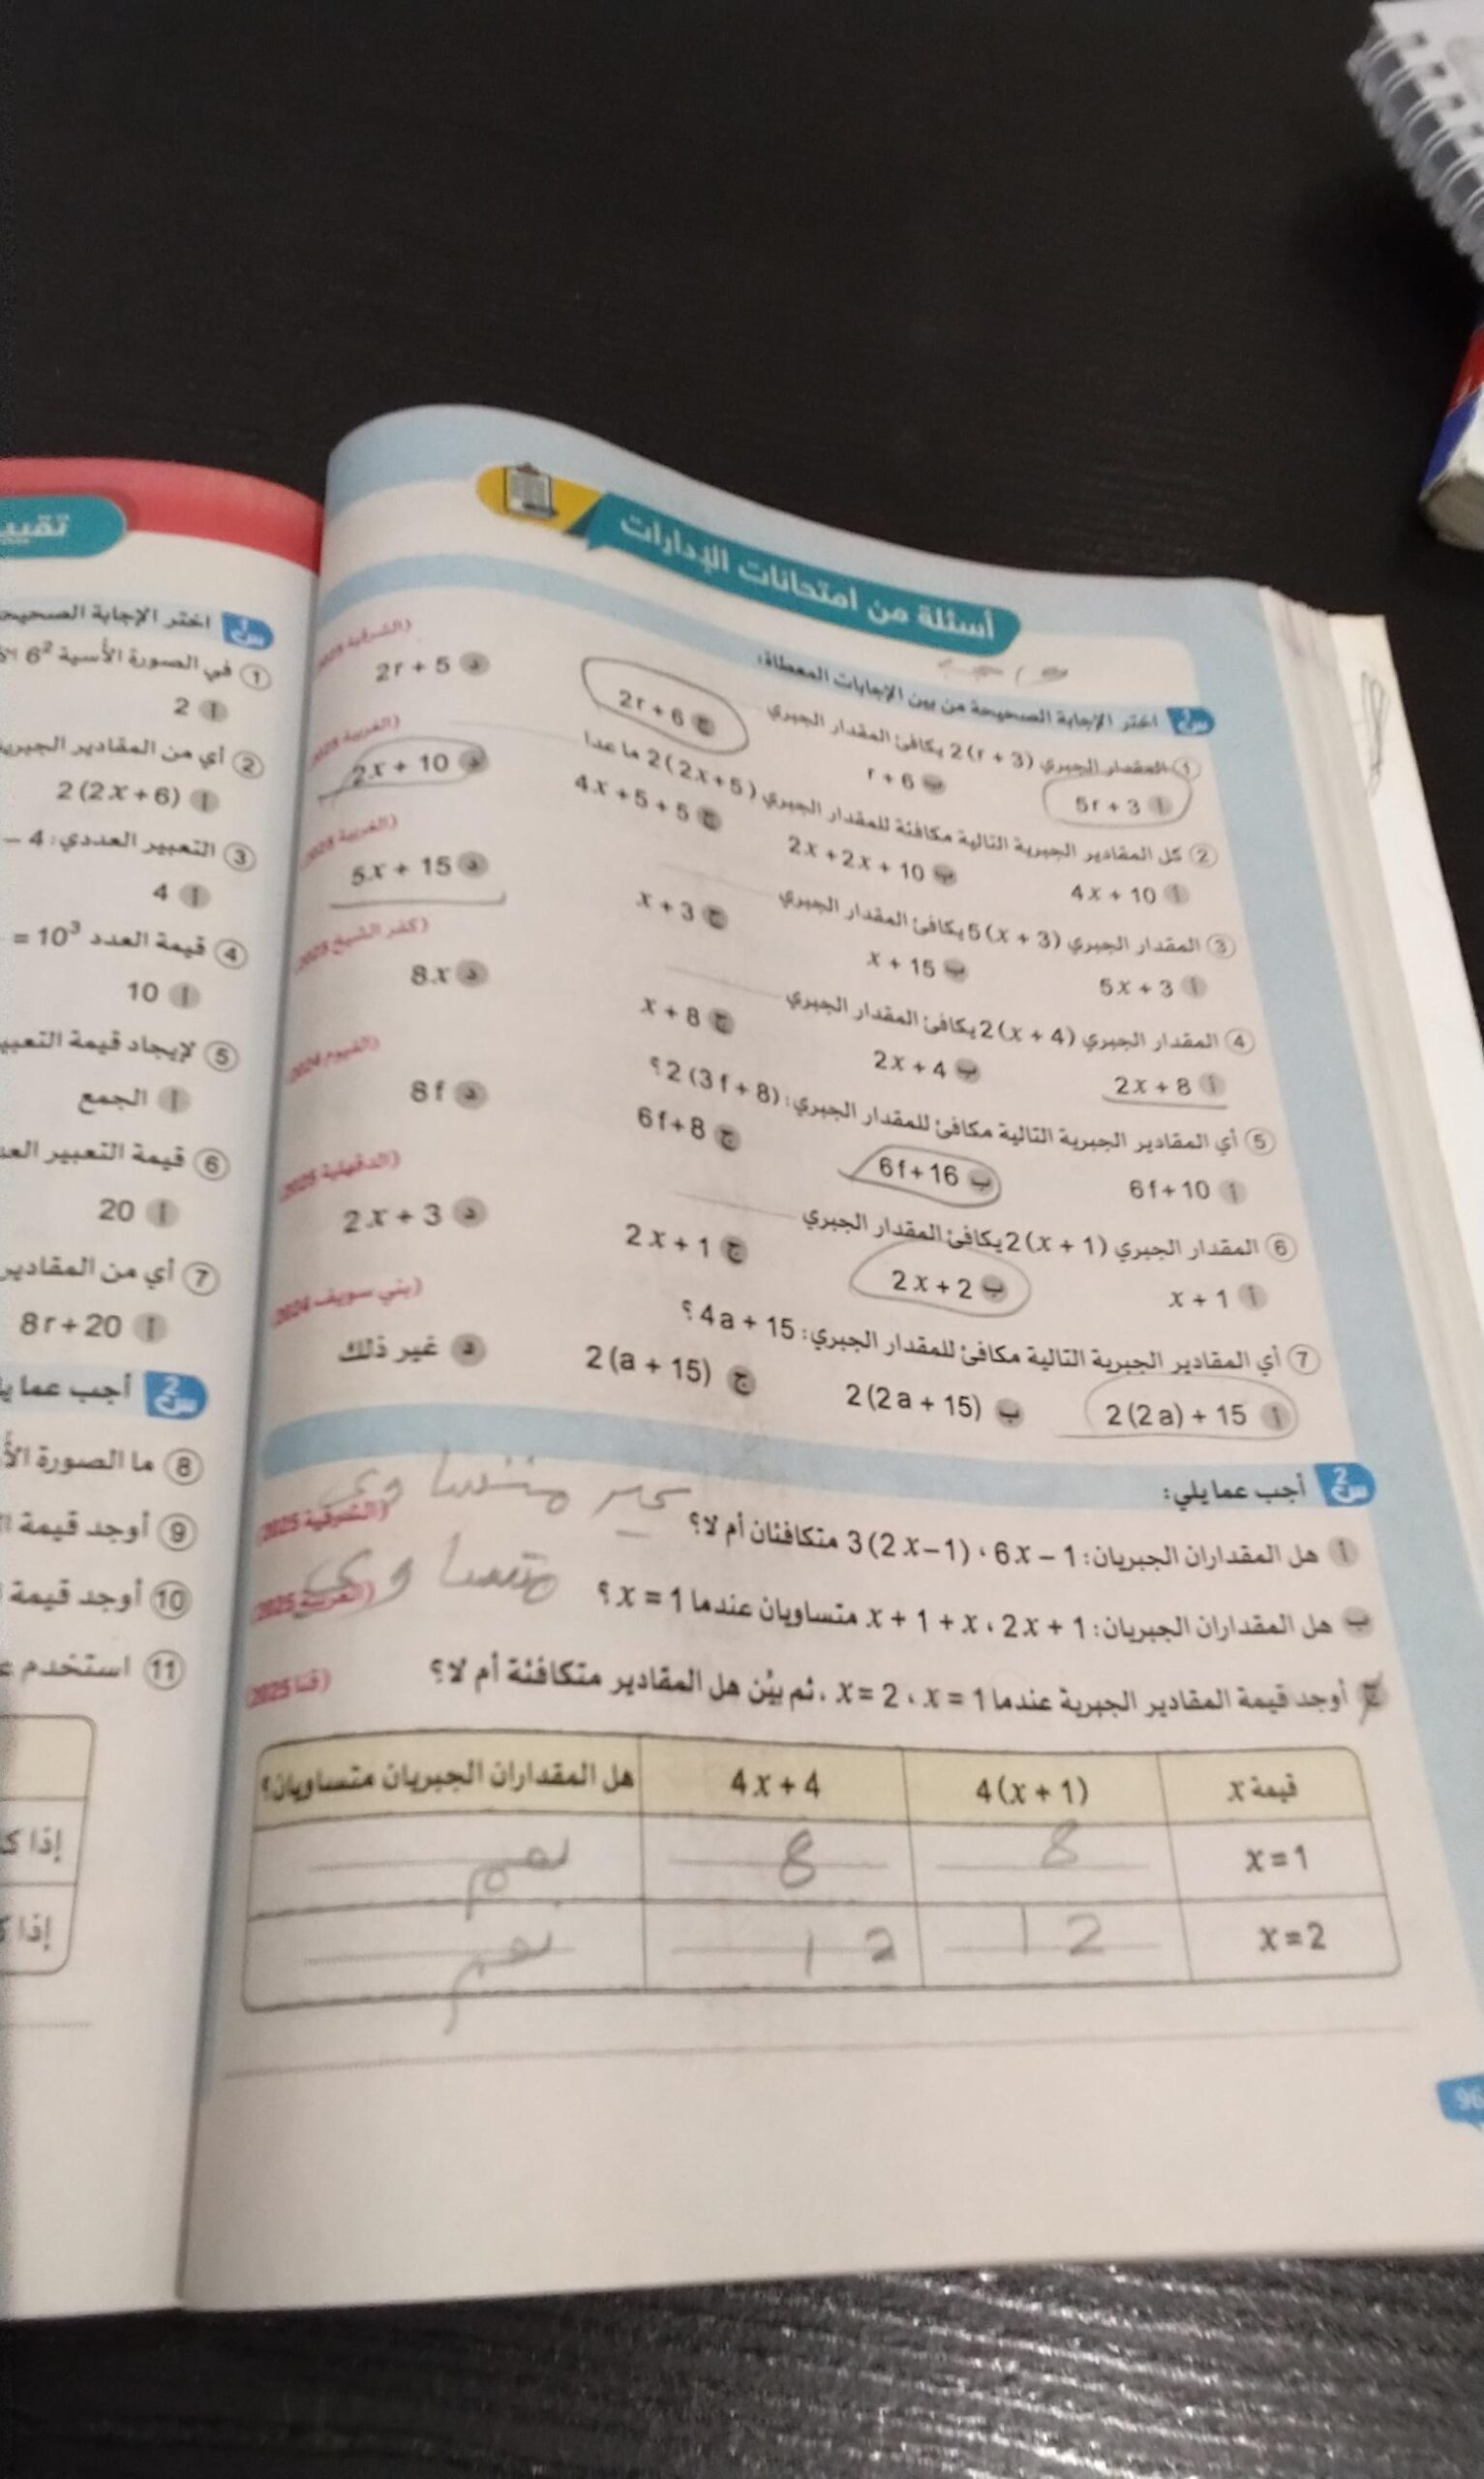 أسئلة من امتحانات الإدارات
س1 اختر الإجابة الصحيحة من بين الإجابات المعطاة:
① المقدار الجبري 2(r + 3) يكافئ المقدار الجبري (الشرقية 2025)
أ 5r + 3 ب r + 6 ج 2r + 6 د 2r + 5
② كل المقادير الجبرية التالية مكافئة للمقدار الجبري 2(2x+5) ما عدا (الغربية 2025)
أ 4x + 10 ب 2x+2x+10 ج 4x+5+5 د 2x + 10
③ المقدار الجبري 5(x + 3) يكافئ المقدار الجبري (الغربية 2025)
أ 5x + 3 ب x + 15 ج x + 3 د 5x + 15
④ المقدار الجبري 2(x + 4) يكافئ المقدار الجبري (كفر الشيخ 2025)
أ 2x + 8 ب 2x + 4 ج x + 8 د 8x
⑤ أي المقادير الجبرية التالية مكافئ للمقدار الجبري: 2(3f+8) ؟ (الفيوم 2024)
أ 6f+10 ب 6f+16 ج 6f+8 د 8f
⑥ المقدار الجبري 2(x + 1) يكافئ المقدار الجبري (الدقهلية 2025)
أ x + 1 ب 2x+2 ج 2x+1 د 2x+3
⑦ أي المقادير الجبرية التالية مكافئ للمقدار الجبري: 4a + 15 ؟ (بني سويف 2024)
أ 2(2a) + 15 ب 2(2a + 15) ج 2(a + 15) د غير ذلك
س2 أجب عما يلي:
غير متساوي
أ هل المقداران الجبريان: 6x – 1 ، 3(2x–1) متكافئان أم لا؟ (الشرقية 2025)
متساوي
ب هل المقداران الجبريان: 2x + 1 ، x + 1 + x متساويان عندما x = 1 ؟ (الغربية 2025)
ج أوجد قيمة المقادير الجبرية عندما x = 1 ، x = 2 ، ثم بيّن هل المقادير متكافئة أم لا؟ (قنا 2025)
قيمة x 4(x + 1) 4x+4 هل المقداران الجبريان متساويان؟
x=1 8 8 نعم
x=2 12 12 نعم
96
تقيي
س1 اختر الإجابة الصحيح
① في الصورة الأسية 6²
أ 2
② أي من المقادير الجبرية
أ 2(2x+6)
③ التعبير العددي: 4 –
أ 4
④ قيمة العدد 10³ =
أ 10
⑤ لإيجاد قيمة التعبير
أ الجمع
⑥ قيمة التعبير العد
أ 20
⑦ أي من المقادير
أ 8r+20
س2 أجب عما ي
⑧ ما الصورة الأ
⑨ أوجد قيمة ا
⑩ أوجد قيمة
⑪ استخدم ع
إذا ك
إذا ك